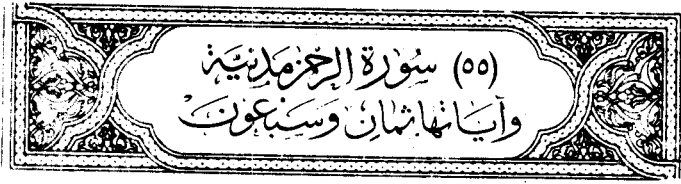 (٥٥) سُورَة الرَّحمٰن مَدَنِيَّة
وَآيَاتهَا ثمَانٍ وَسَبْعُونَ